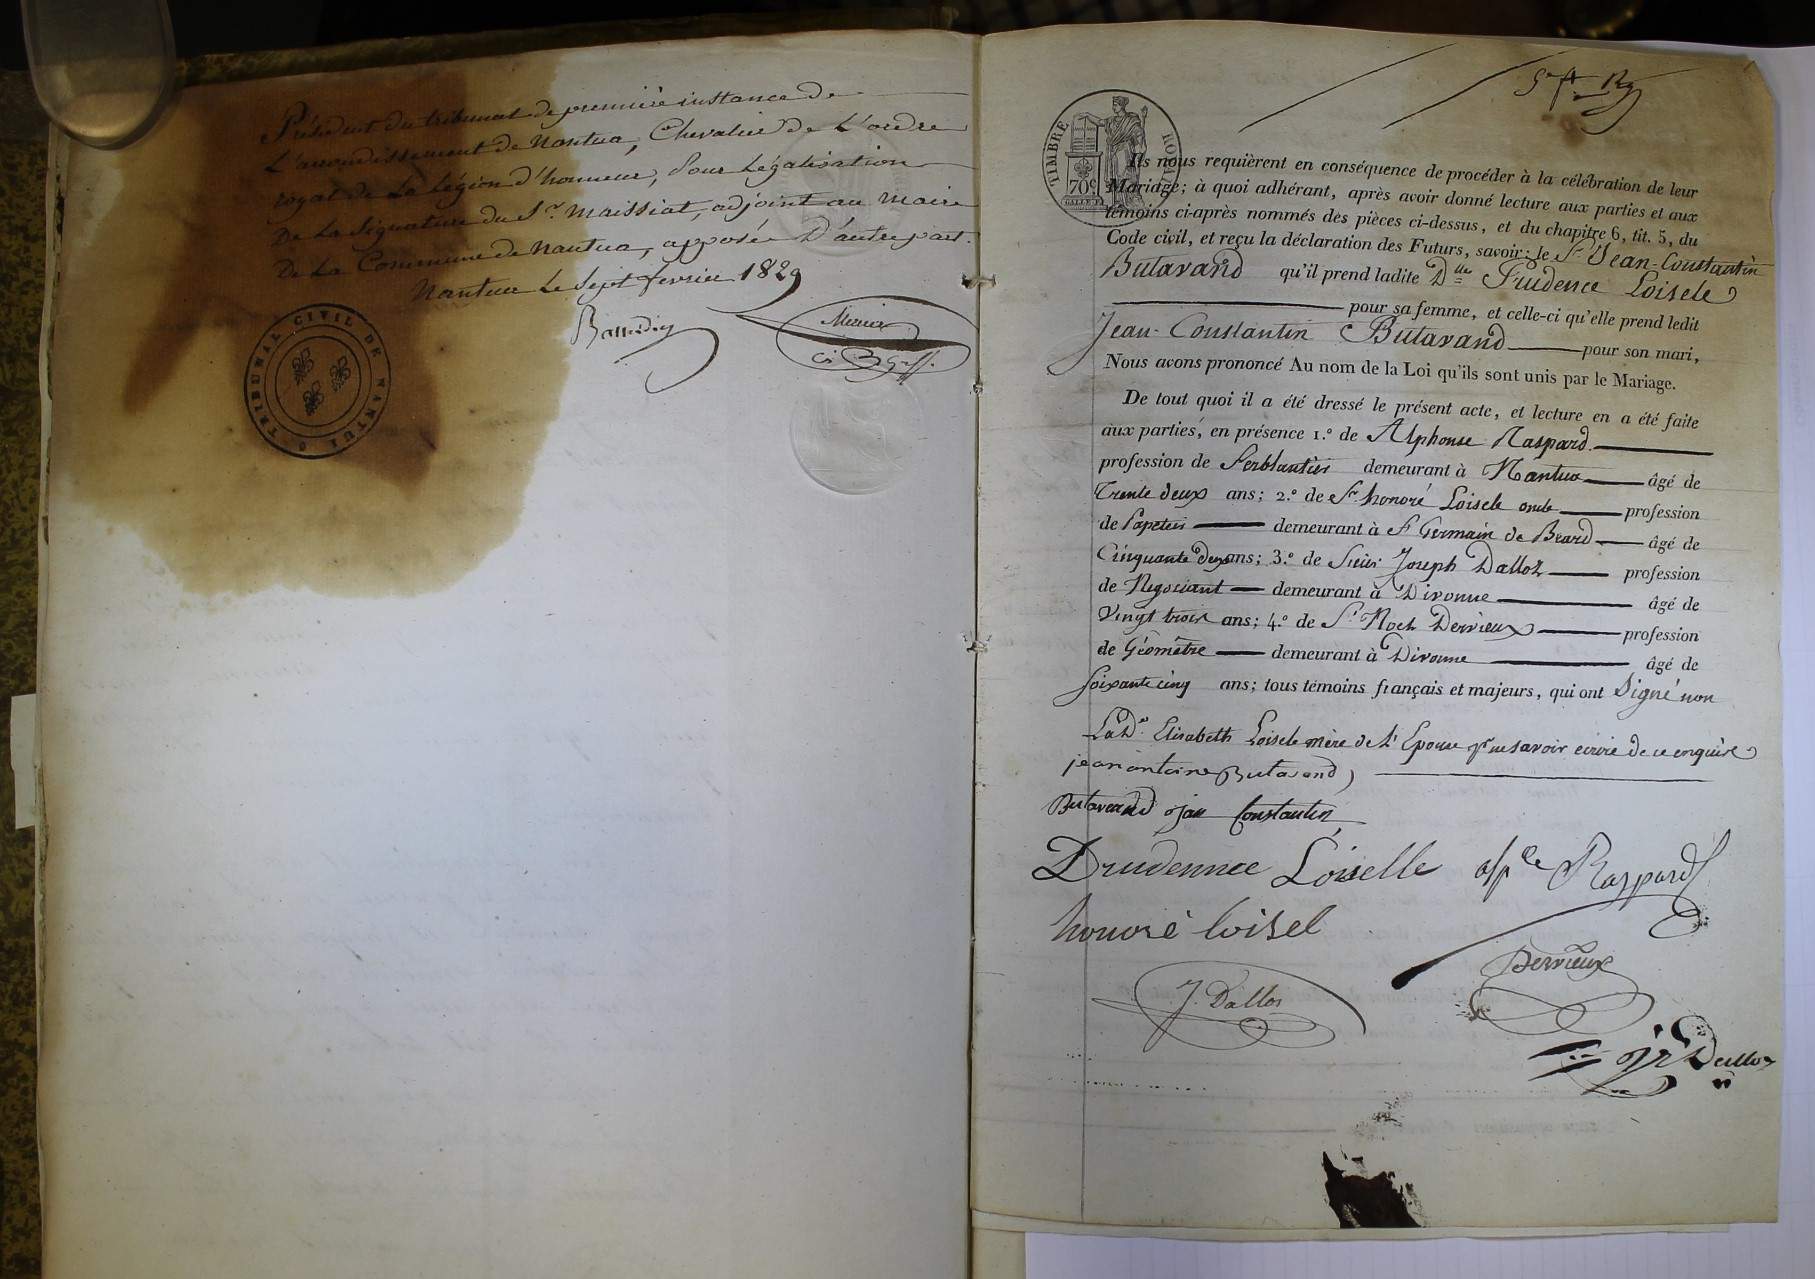 Président du tribunal de première instance de
L'arrondissement de Nantua, Chevalier de L'ordre
royal de La Légion d'honneur, Pour Légalisation
De La Signature du Sr. Maissiat, adjoint au Maire
De La Commune de Nantua, apposée D'autre part.
Nantua Le Sept fevrier 1829
Mercier
TRIBUNAL CIVIL DE NANTUA
TIMBRE ROYAL
70c
Ils nous requièrent en conséquence de procéder à la célébration de leur
Mariage; à quoi adhérant, après avoir donné lecture aux parties et aux
témoins ci-après nommés des pièces ci-dessus, et du chapitre 6, tit. 5, du
Code civil, et reçu la déclaration des Futurs, savoir: le Sr. Jean-Constantin
Butavand qu'il prend ladite Dlle Prudence Loisele
pour sa femme, et celle-ci qu'elle prend ledit
Jean-Constantin Butavand pour son mari,
Nous avons prononcé Au nom de la Loi qu'ils sont unis par le Mariage.
De tout quoi il a été dressé le présent acte, et lecture en a été faite
aux parties, en présence 1.º de Alphonse Raspard.
profession de Ferblantier demeurant à Nantua âgé de
Trente deux ans; 2.º de Sr. honoré Loisele oncle profession
de Papetier demeurant à St Germain de Béard âgé de
Cinquante deux ans; 3.º de Sieur Joseph Dalloz profession
de Negociant demeurant à Divonne âgé de
Vingt trois ans; 4.º de Sr. Roch Derrieux profession
de Géomètre demeurant à Divonne âgé de
Soixante cinq ans; tous témoins français et majeurs, qui ont Signé non
La De. Elisabeth Loisele mère de L'Epouse pr. ne savoir écrire de ce enquise
jean antoine Butavand
Butavand jan Constantin
Prudennce Loiselle alpse Raspard
honoré loisel
Derrieux
J. Dalloz
Dalloz